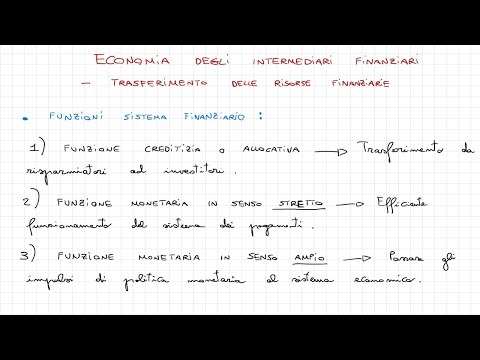 ECONOMIA DEGLI INTERMEDIARI FINANZIARI
- TRASFERIMENTO DELLE RISORSE FINANZIARIE
• FUNZIONI SISTEMA FINANZIARIO:
1) FUNZIONE CREDITIZIA O ALLOCATIVA → Trasferimento da
risparmiatori ad investitori.
2) FUNZIONE MONETARIA IN SENSO STRETTO → Efficiente
funzionamento del sistema dei pagamenti.
3) FUNZIONE MONETARIA IN SENSO AMPIO → Passare gli
impulsi di politica monetaria al sistema economico.